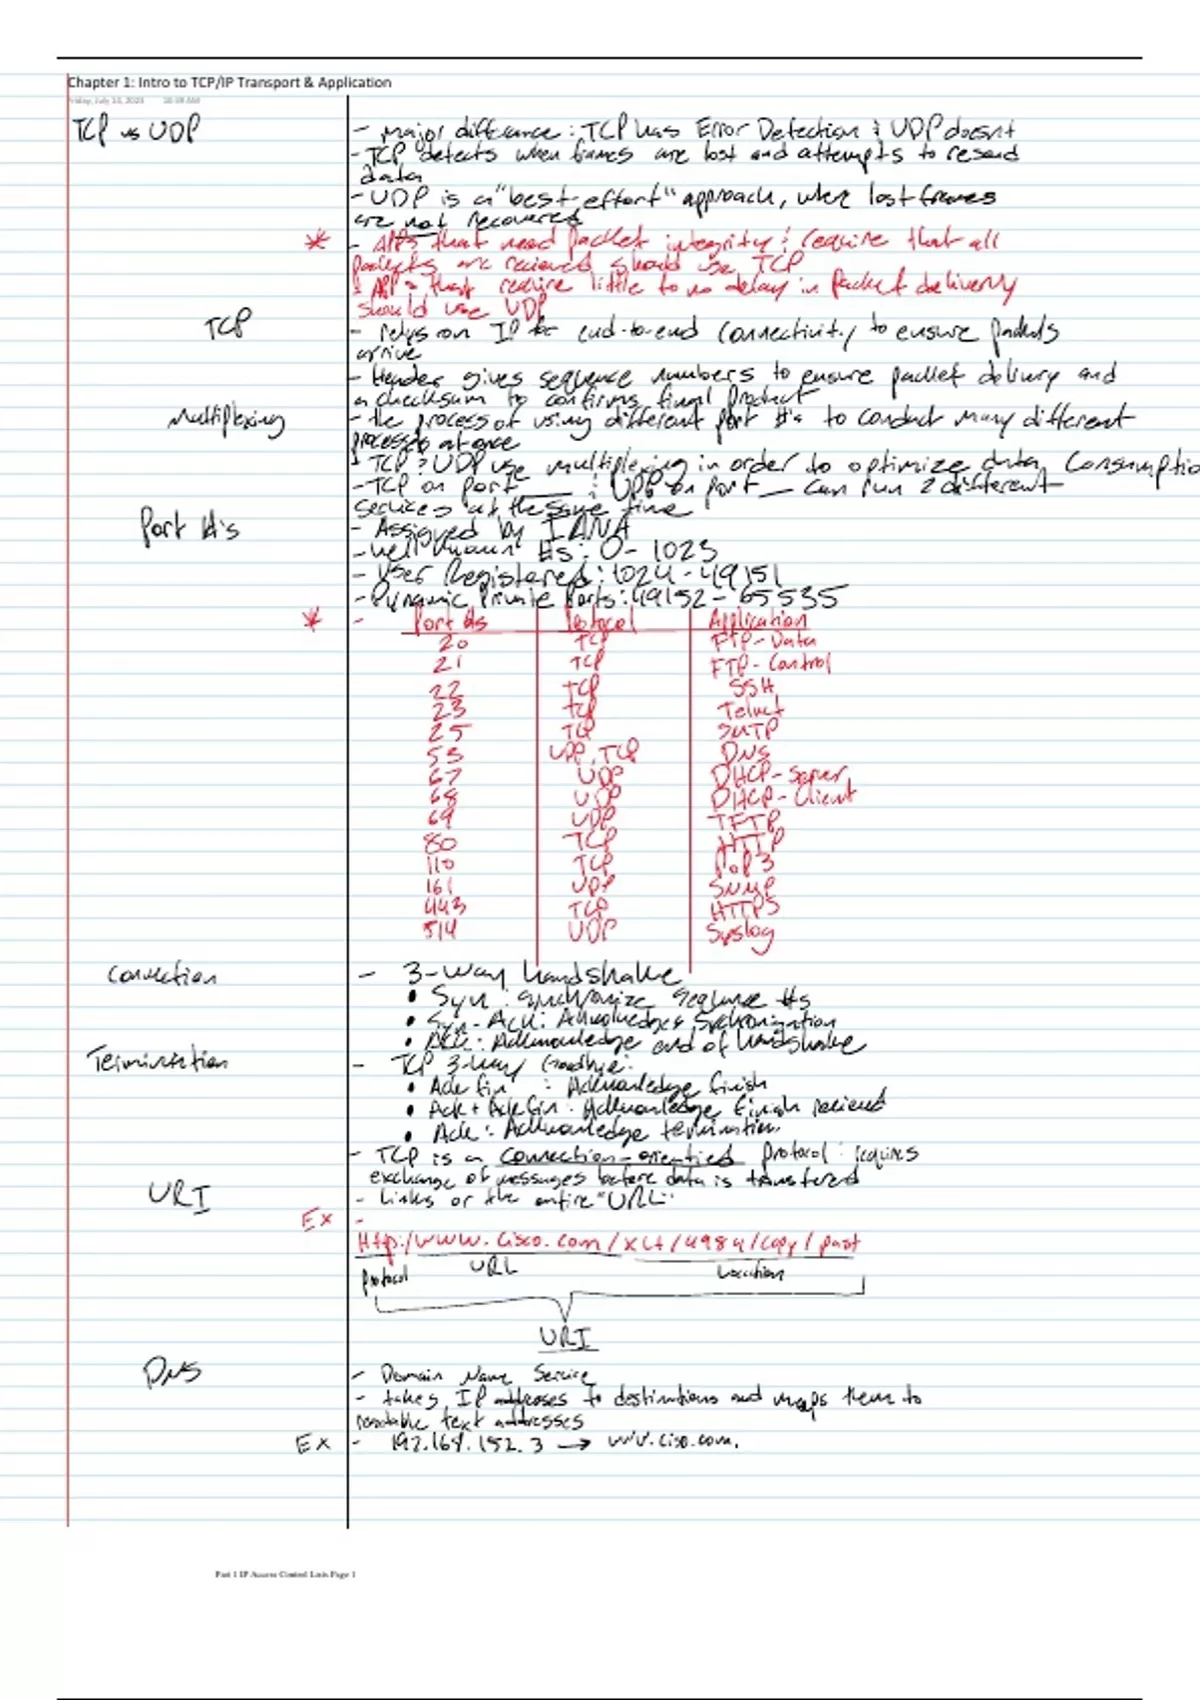 Chapter 1: Intro to TCP/IP Transport & Application
Friday, July 14, 2023 10:59 AM
TCP vs UDP
- Major difference: TCP has Error Detection & UDP doesnt
- TCP detects when frames are lost and attempts to resend
data
- UDP is a "best-effort" approach, where lost frames
are not recovered
* - APPs that need Packet integrity & require that all
packets are recieved should use TCP
& APPs that require little to no delay in Packet delivery
should use UDP
TCP
- relys on IP for end-to-end connectivity to ensure packets
arrive
- Header gives sequence numbers to ensure packet delivery and
a checksum to confirms final product
Multiplexing
- the process of using different port #s to conduct many different
process at once
& TCP & UDP use multiplexing in order to optimize data consumptio
- TCP on port ___ & UDP on port __ can run 2 different
services at the same time
Port #'s
- Assigned by IANA
- Well Known #s: 0-1023
- User Registered: 1024-49151
- Dynamic Private Ports: 49152-65535
* - Port #s Protocol Application
20 TCP FTP-Data
21 TCP FTP-Control
22 TCP SSH
23 TCP Telnet
25 TCP SMTP
53 UDP, TCP DNS
67 UDP DHCP-Server
68 UDP DHCP-Client
69 UDP TFTP
80 TCP HTTP
110 TCP POP3
161 UDP SNMP
443 TCP HTTPS
514 UDP Syslog
Connection
- 3-Way handshake
• Syn: synchronize sequence #s
• Syn-Ack: Acknowledges Sychronization
• Ack: Acknowledge end of handshake
Termination
- TCP 3-way Goodbye:
• Ack fin: Acknowledge finish
• Ack + Ack fin: Acknowledge finish recieved
• Ack: Acknowledge termination.
- TCP is a connection-oriented protocol: requires
exchange of messages before data is transfered
URI
- Links or the entire "URL"
Ex -
Http:/www.cisco.com/xct/4984/copy/past
Protocol URL Location
URI
DNS
- Domain Name Service
- takes IP addresses to destinations and maps them to
readable text addresses
Ex - 192.168.152.3 → www.cisco.com.
Part 1 IP Access Control Lists Page 1